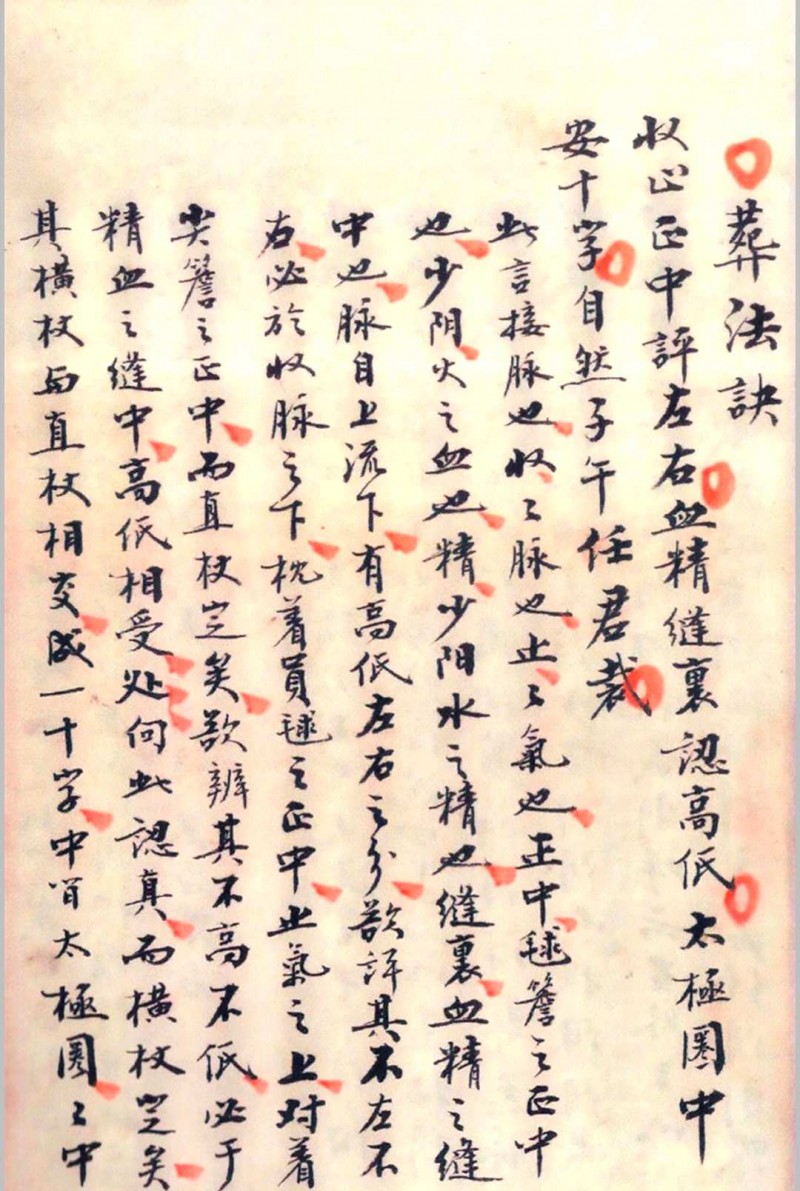 葬法訣
收止正中評左右血精縫裏認高低太極圈中
安十字自然子午任君裁
此言接脉也收々脉也止々氣也正中毬簷之正中
也少阴火之血也精少阳水之精也縫裏血精之縫
中也脉自上流下有高低左右之分欲評其不左不
右必於收脉之下枕着員毬之正中止氣之上对着
尖簷之正中而直杖定矣欲辨其不高不低必于
精血之縫中高低相受处向此認真而横杖定矣
其横杖与直杖相交成一十字中間太極圈々中